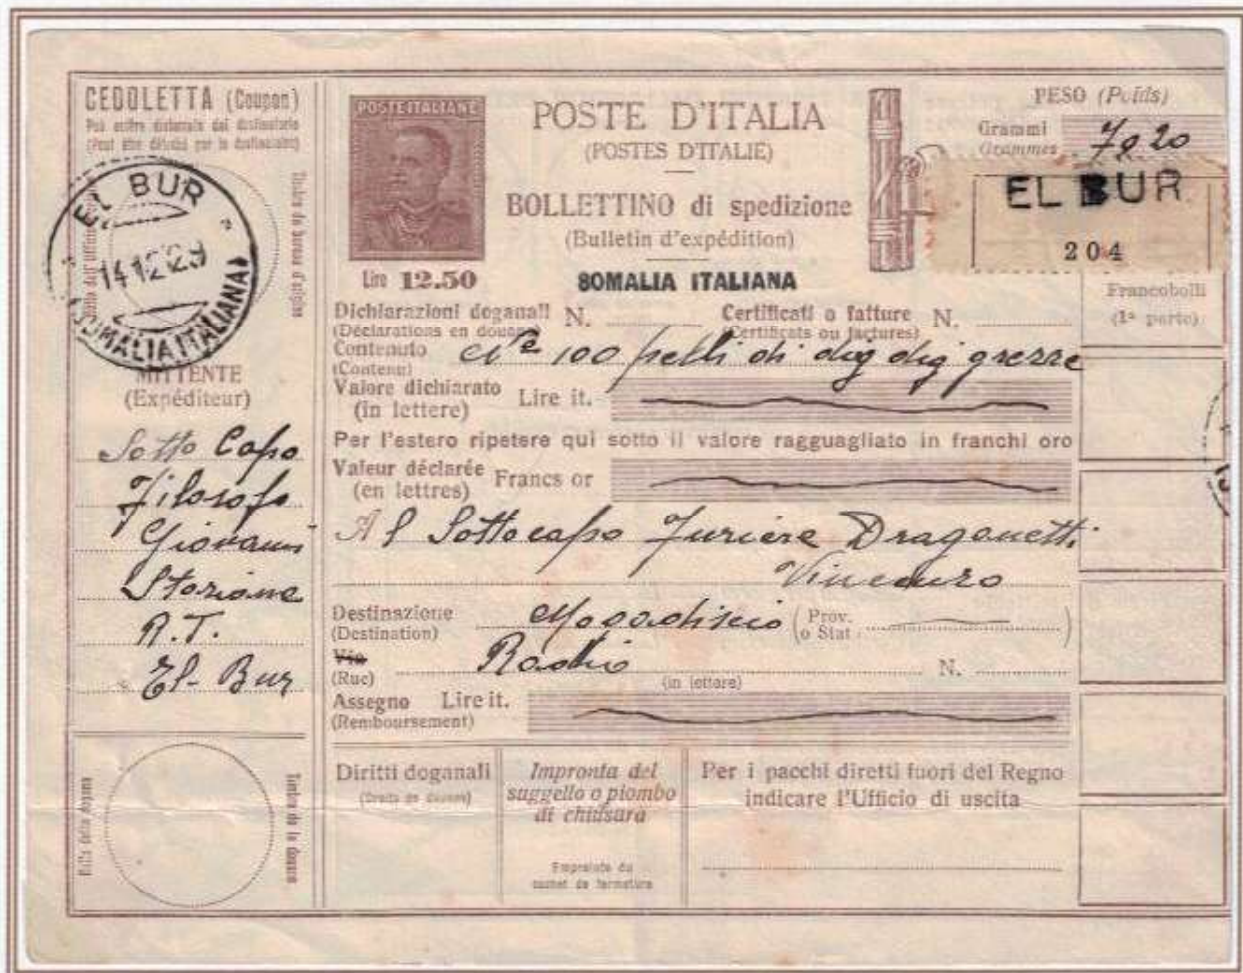 CEDOLETTA (Coupon)
Può essere distaccata dal destinatario
(Peut être détaché par le destinataire)
EL BUR
14 12 29
(SOMALIA ITALIANA)
Timbre du bureau d'origine
MITTENTE
(Expéditeur)
Sotto Capo
Filosofo
Giovanni
Stazione
R.T.
El-Bur
Bollo della dogana
Timbre de la douane
POSTE ITALIANE
Lire 12.50
POSTE D'ITALIA
(POSTES D'ITALIE)
BOLLETTINO di spedizione
(Bulletin d'expédition)
SOMALIA ITALIANA
PESO (Poids)
Grammi
Grammes
EL BUR
204
Francobolli
(1ª parte)
Dichiarazioni doganali N.
(Déclarations en douane)
Certificati o fatture N.
(Certificats ou factures)
Contenuto
(Contenu)
100 pelli di dig dig grezze
Valore dichiarato
(in lettere)
Lire it.
Per l'estero ripetere qui sotto il valore ragguagliato in franchi oro
Valeur déclarée
(en lettres)
Francs or
Al Sottocapo Furiere Dragonetti
Vincenzo
Destinazione
(Destination)
Mogadiscio
(Prov.
o Stat.)
Via
(Rue)
Radio
N.
(in lettere)
Assegno Lire it.
(Remboursement)
Diritti doganali
(Droits de douane)
Impronta del
suggello o piombo
di chiusura
Empreinte du
cachet de fermeture
Per i pacchi diretti fuori del Regno
indicare l'Ufficio di uscita